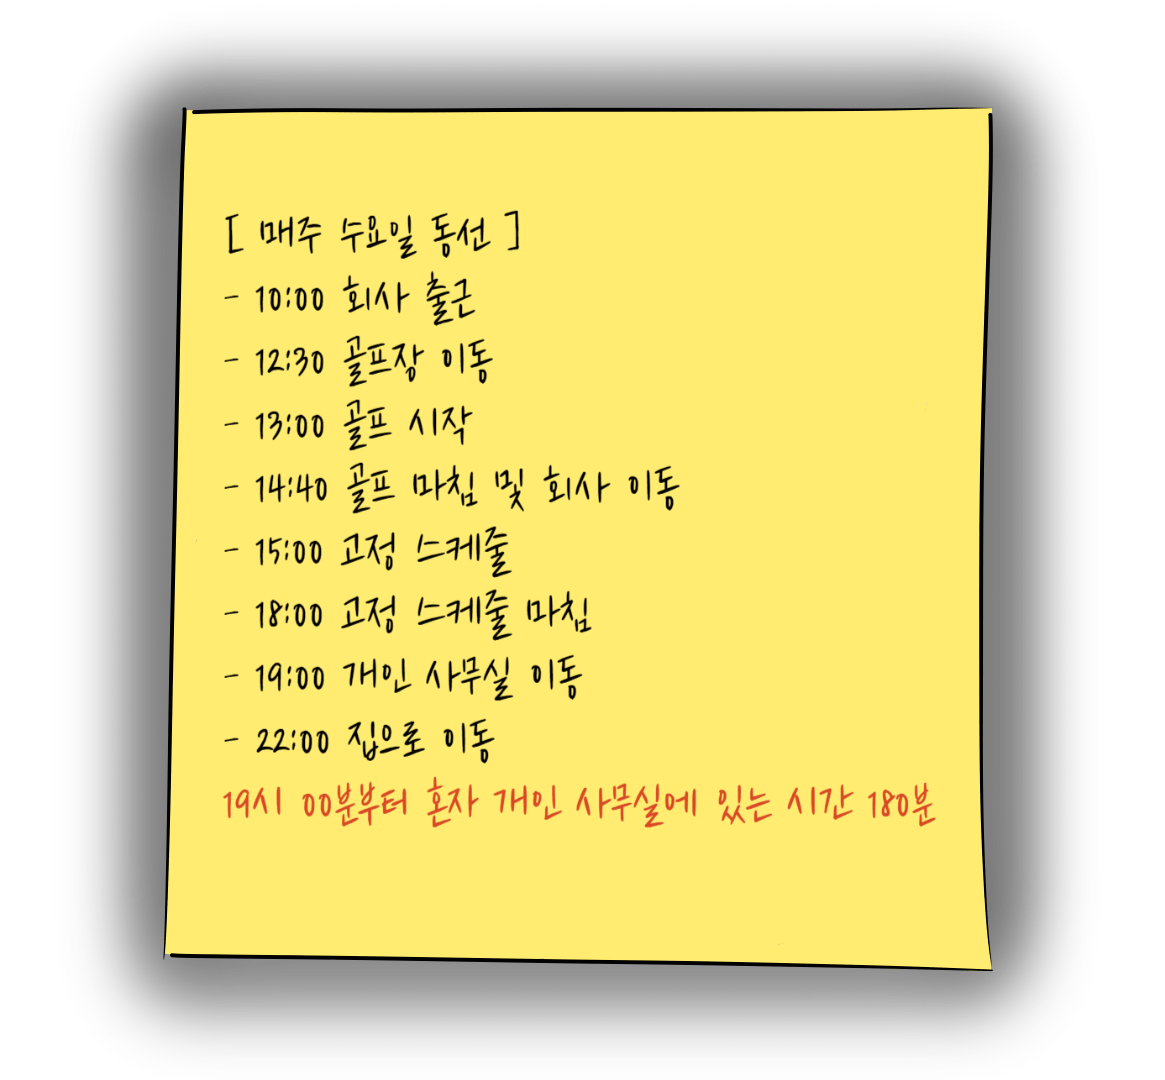 [ 매주 수요일 동선 ]
- 10:00 회사 출근
- 12:30 골프장 이동
- 13:00 골프 시작
- 14:40 골프 마침 및 회사 이동
- 15:00 고정 스케줄
- 18:00 고정 스케줄 마침
- 19:00 개인 사무실 이동
- 22:00 집으로 이동
19시 00분부터 혼자 개인 사무실에 있는 시간 180분